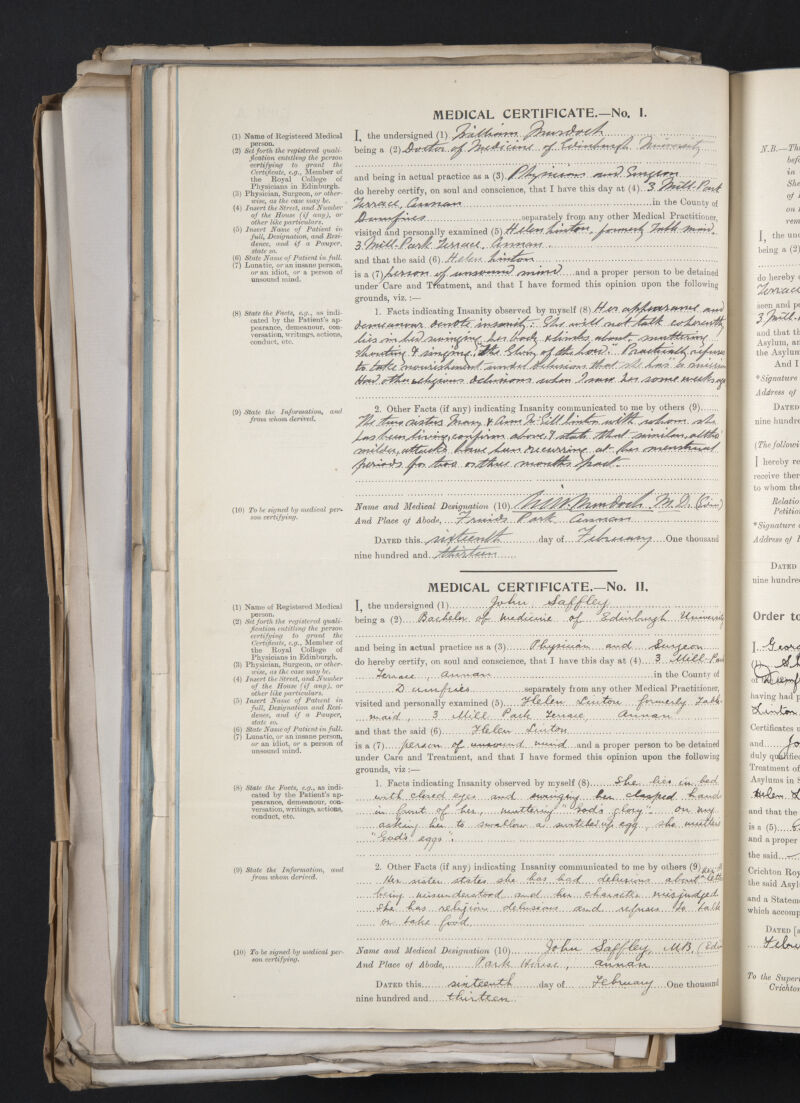 MEDICAL CERTIFICATE.—No. I.
(1) Name of Registered Medical
person.
(2) Set forth the registered quali-
fication entitling the person
certifying to grant the
Certificate, e.g., Member of
the Royal College of
Physicians in Edinburgh.
(3) Physician, Surgeon, or other-
wise, as the case may be.
(4) Insert the Street, and Number
of the House (if any), or
other like particulars.
(5) Insert Name of Patient in
full, Designation, and Resi-
dence, and if a Pauper,
state so.
(6) State Name of Patient in full.
(7) Lunatic, or an insane person,
or an idiot, or a person of
unsound mind.
I, the undersigned (1) William Murdoch
being a (2) Doctor of Medicine of Edinburgh University
and being in actual practice as a (3) Physician and Surgeon
do hereby certify, on soul and conscience, that I have this day at (4) 3 Mill-Park
Terrace, Annan in the County of
Dumfries separately from any other Medical Practitioner,
visited and personally examined (5) Helen Linton, formerly Table maid,
3 Mill-Park Terrace, Annan.
and that the said (6) Helen Linton
is a (7) person of unsound mind and a proper person to be detained
under Care and Treatment, and that I have formed this opinion upon the following
grounds, viz.:—
(8) State the Facts, e.g., as indi-
cated by the Patient's ap-
pearance, demeanour, con-
versation, writings, actions,
conduct, etc.
1. Facts indicating Insanity observed by myself (8) Her appearance and
demeanour denote insanity. She will not talk coherently
lies in bed swinging her body & limbs about, muttering
shouting & singing, "the Glory of the Lord." Practically refuses
to take nourishment under delusions that she has a mission
Had other religious delusions when I saw her some weeks ago
(9) State the Information, and
from whom derived.
2. Other Facts (if any) indicating Insanity communicated to me by others (9)
The two sisters Mary & Ann McGill Linton with whom she
has been living, confirm above & state that similar, altho'
milder, attacks have been recurring at her menstrual
periods for two or three months past.
(10) To be signed by medical per-
son certifying.
Name and Medical Designation (10) Wm. Murdoch M.D. (Edin)
And Place of Abode, Park Annan
DATED this sixteenth day of February One thousand
nine hundred and thirteen
MEDICAL CERTIFICATE.—No. II.
(1) Name of Registered Medical
person.
(2) Set forth the registered quali-
fication entitling the person
certifying to grant the
Certificate, e.g., Member of
the Royal College of
Physicians in Edinburgh.
(3) Physician, Surgeon, or other-
wise, as the case may be.
(4) Insert the Street, and Number
of the House (if any), or
other like particulars.
(5) Insert Name of Patient in
full, Designation and Resi-
dence, and if a Pauper,
state so.
(6) State Name of Patient in full.
(7) Lunatic, or an insane person,
or an idiot, or a person of
unsound mind.
I, the undersigned (1) John Saffley
being a (2) Bachelor of medicine of Edinburgh University
and being in actual practice as a (3) Physician and Surgeon
do hereby certify, on soul and conscience, that I have this day at (4) 3 Mill-Park
Terrace, Annan in the County of
Dumfries separately from any other Medical Practitioner,
visited and personally examined (5) Helen Linton formerly Table
maid, 3 Mill Park Terrace, Annan
and that the said (6) Helen Linton
is a (7) person of unsound mind and a proper person to be detained
under Care and Treatment, and that I have formed this opinion upon the following
grounds, viz:—
(8) State the Facts, e.g., as indi-
cated by the Patient's ap-
pearance, demeanour, con-
versation, writings, actions,
conduct, etc.
1. Facts indicating Insanity observed by myself (8) She lies in bed
with closed eyes and swinging her clasped hands
in front of her, muttering "God's glory". On my
asking her to swallow a switched up egg, she mutters
"God's eggs".
(9) State the Information, and
from whom derived.
2. Other Facts (if any) indicating Insanity communicated to me by others (9)
Her sister states she has had delusions about
being misunderstood and her character misjudged
She has religious delusions and refuses to talk
or take food
(10) To be signed by medical per-
son certifying.
Name and Medical Designation (10) John Saffley, MB, (Edin
And Place of Abode, Park House, Annan
DATED this sixteenth day of February One thousand
nine hundred and thirteen
N.B.—Th
befo
in
She
of
on
rem
I, the und
being a (2)
do hereby c
Terrace
seen and pe
3 Mill-
and that th
Asylum, an
the Asylum
And I
*Signature
Address of
DATED
nine hundre
(The followi
I hereby re
receive ther
to whom the
Relatio
Petitio
*Signature o
Address of P
DATED
nine hundre
Order to
I, Georg
of Dumf
having had p
Linton
Certificates u
and Jo
duly qualifie
Treatment of
Asylums in S
Helen L
and that the
is a (5)
and a proper
the said
Crichton Roy
the said Asyl
and a Stateme
which accomp
DATED [s
Febru
To the Superi
Crichton